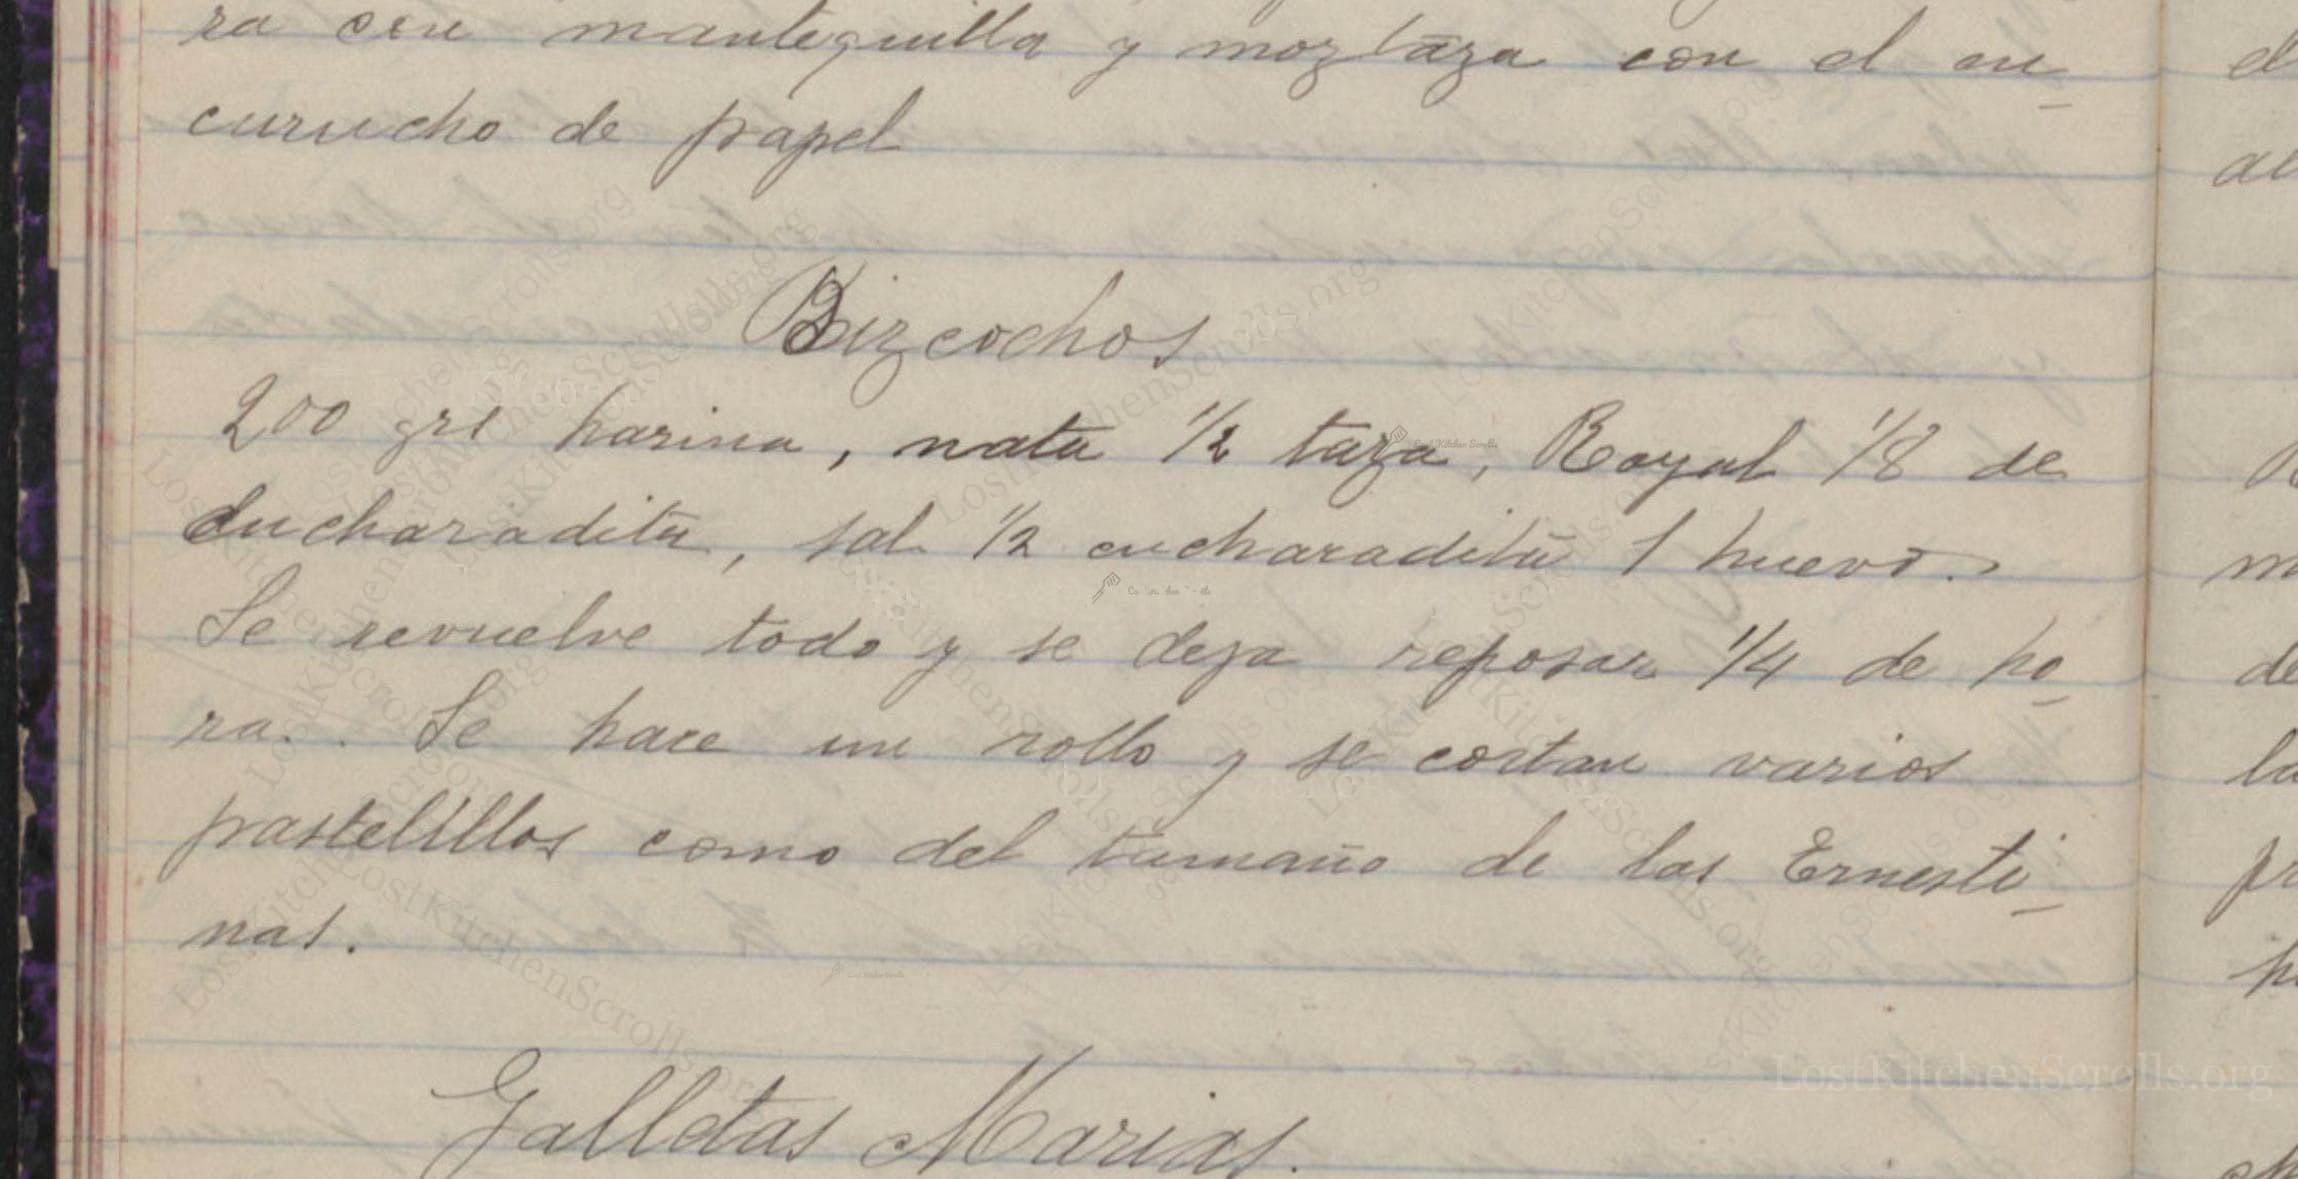 ra con mantequilla y moztaza con el cu
curucho de papel
Bizcochos
200 grs harina, nata 1/2 taza, Royal 1/8 de
cucharadita, sal 1/2 cucharadita 1 huevo.
Se revuelve todo y se deja reposar 1/4 de ho_
ra. Se hace un rollo y se cortan varios
pastelillos como del tamaño de las Ernesti_
nas.
Galletas Marias.
LostKitchenScrolls.org